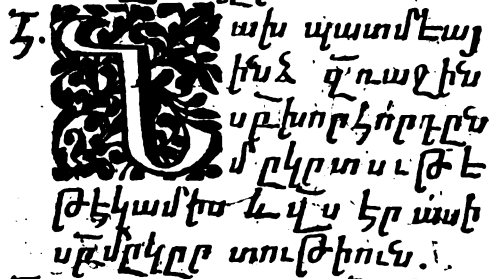 Է. Նախ պատմէայ
ինձ զառաջին
սբ խորհորդըն
մըկըրտութե
թէկամիս և վս էր ասի
սբ մըկըր տութիուն.